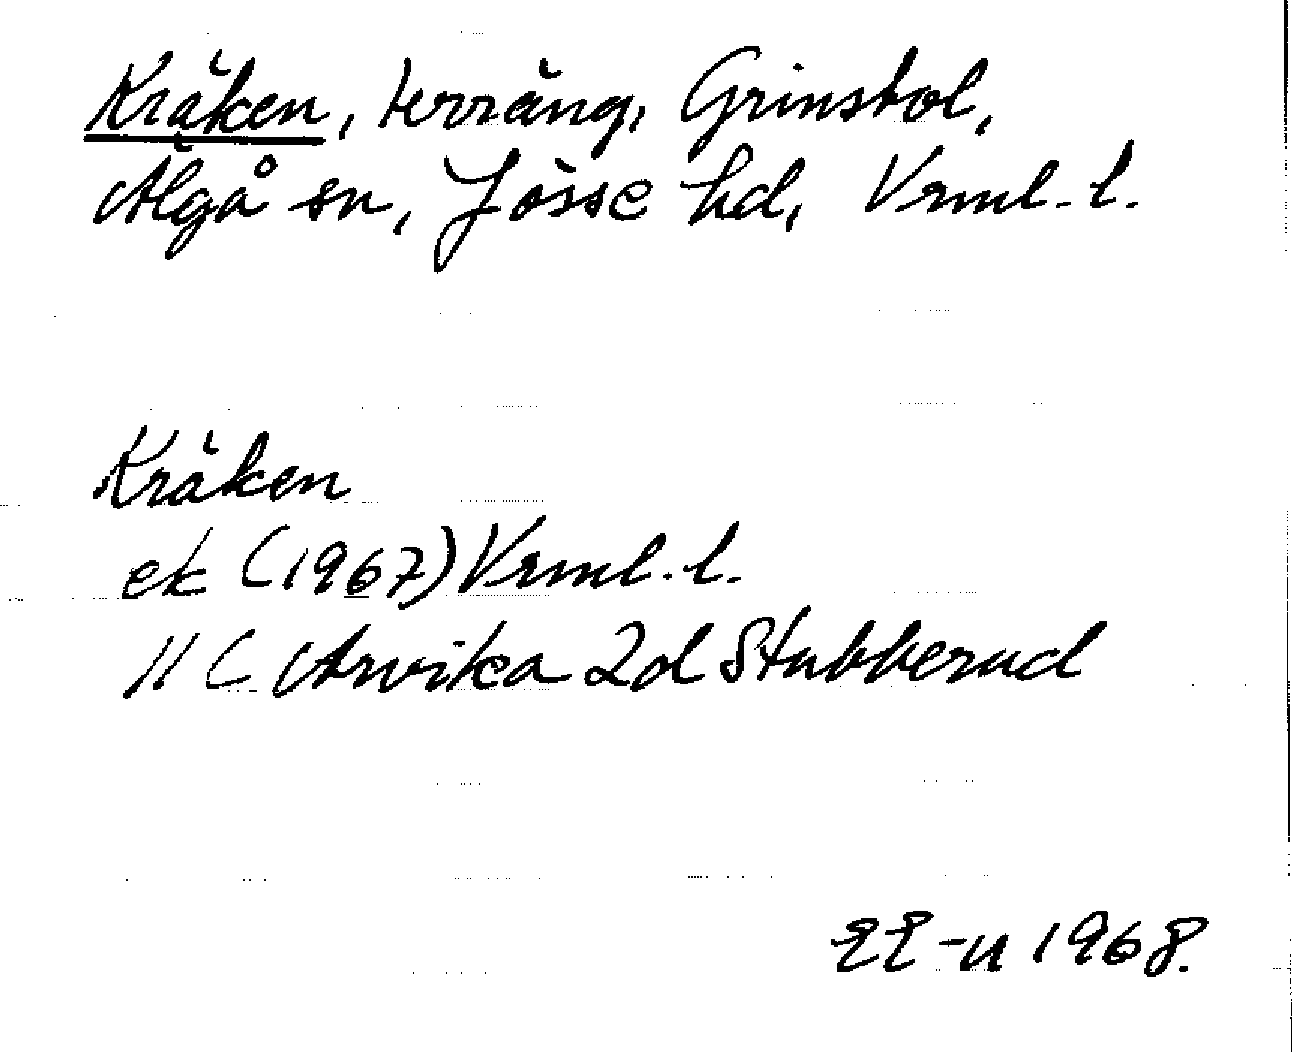 Kräken, terräng, Grinsbol,
Älgå sn, Jösse hd, Vrml. l.
Kräken
ek (1967) Vrml. l.
11 C Arvika 2d Stubberud
1968.